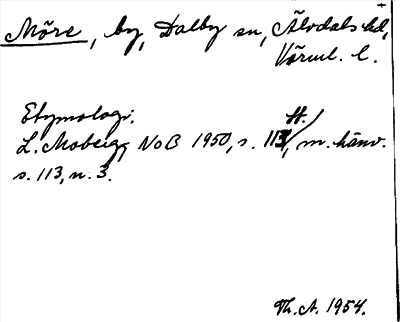 Möre, by, Dalby sn, Älvdals hd,
Värml. l.
Etymologi:
L. Moberg, NoB 1950, s. 113 ff., m. hänv.
s. 113, n. 3.
Th. A. 1954.